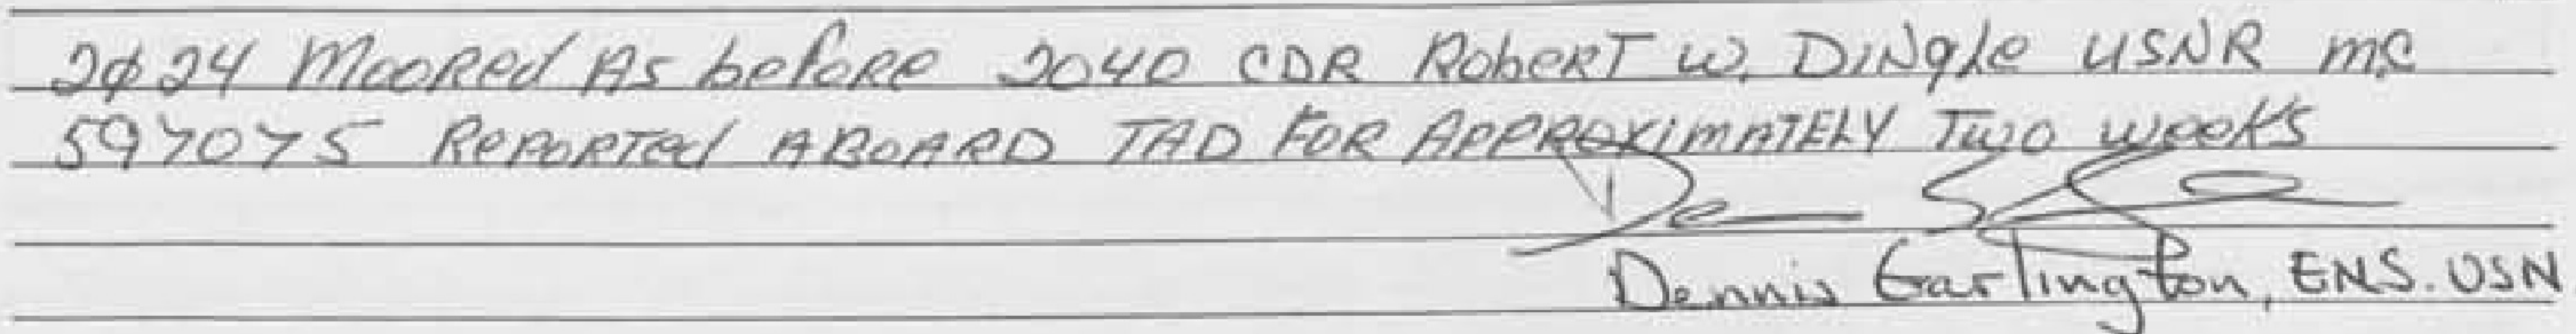 2024 Moored As before 2040 CDR Robert W. Dingle USNR MC
597075 Reported ABOARD TAD FOR APPROXIMATELY Two weeks
Dennis Garlington, ENS. USN